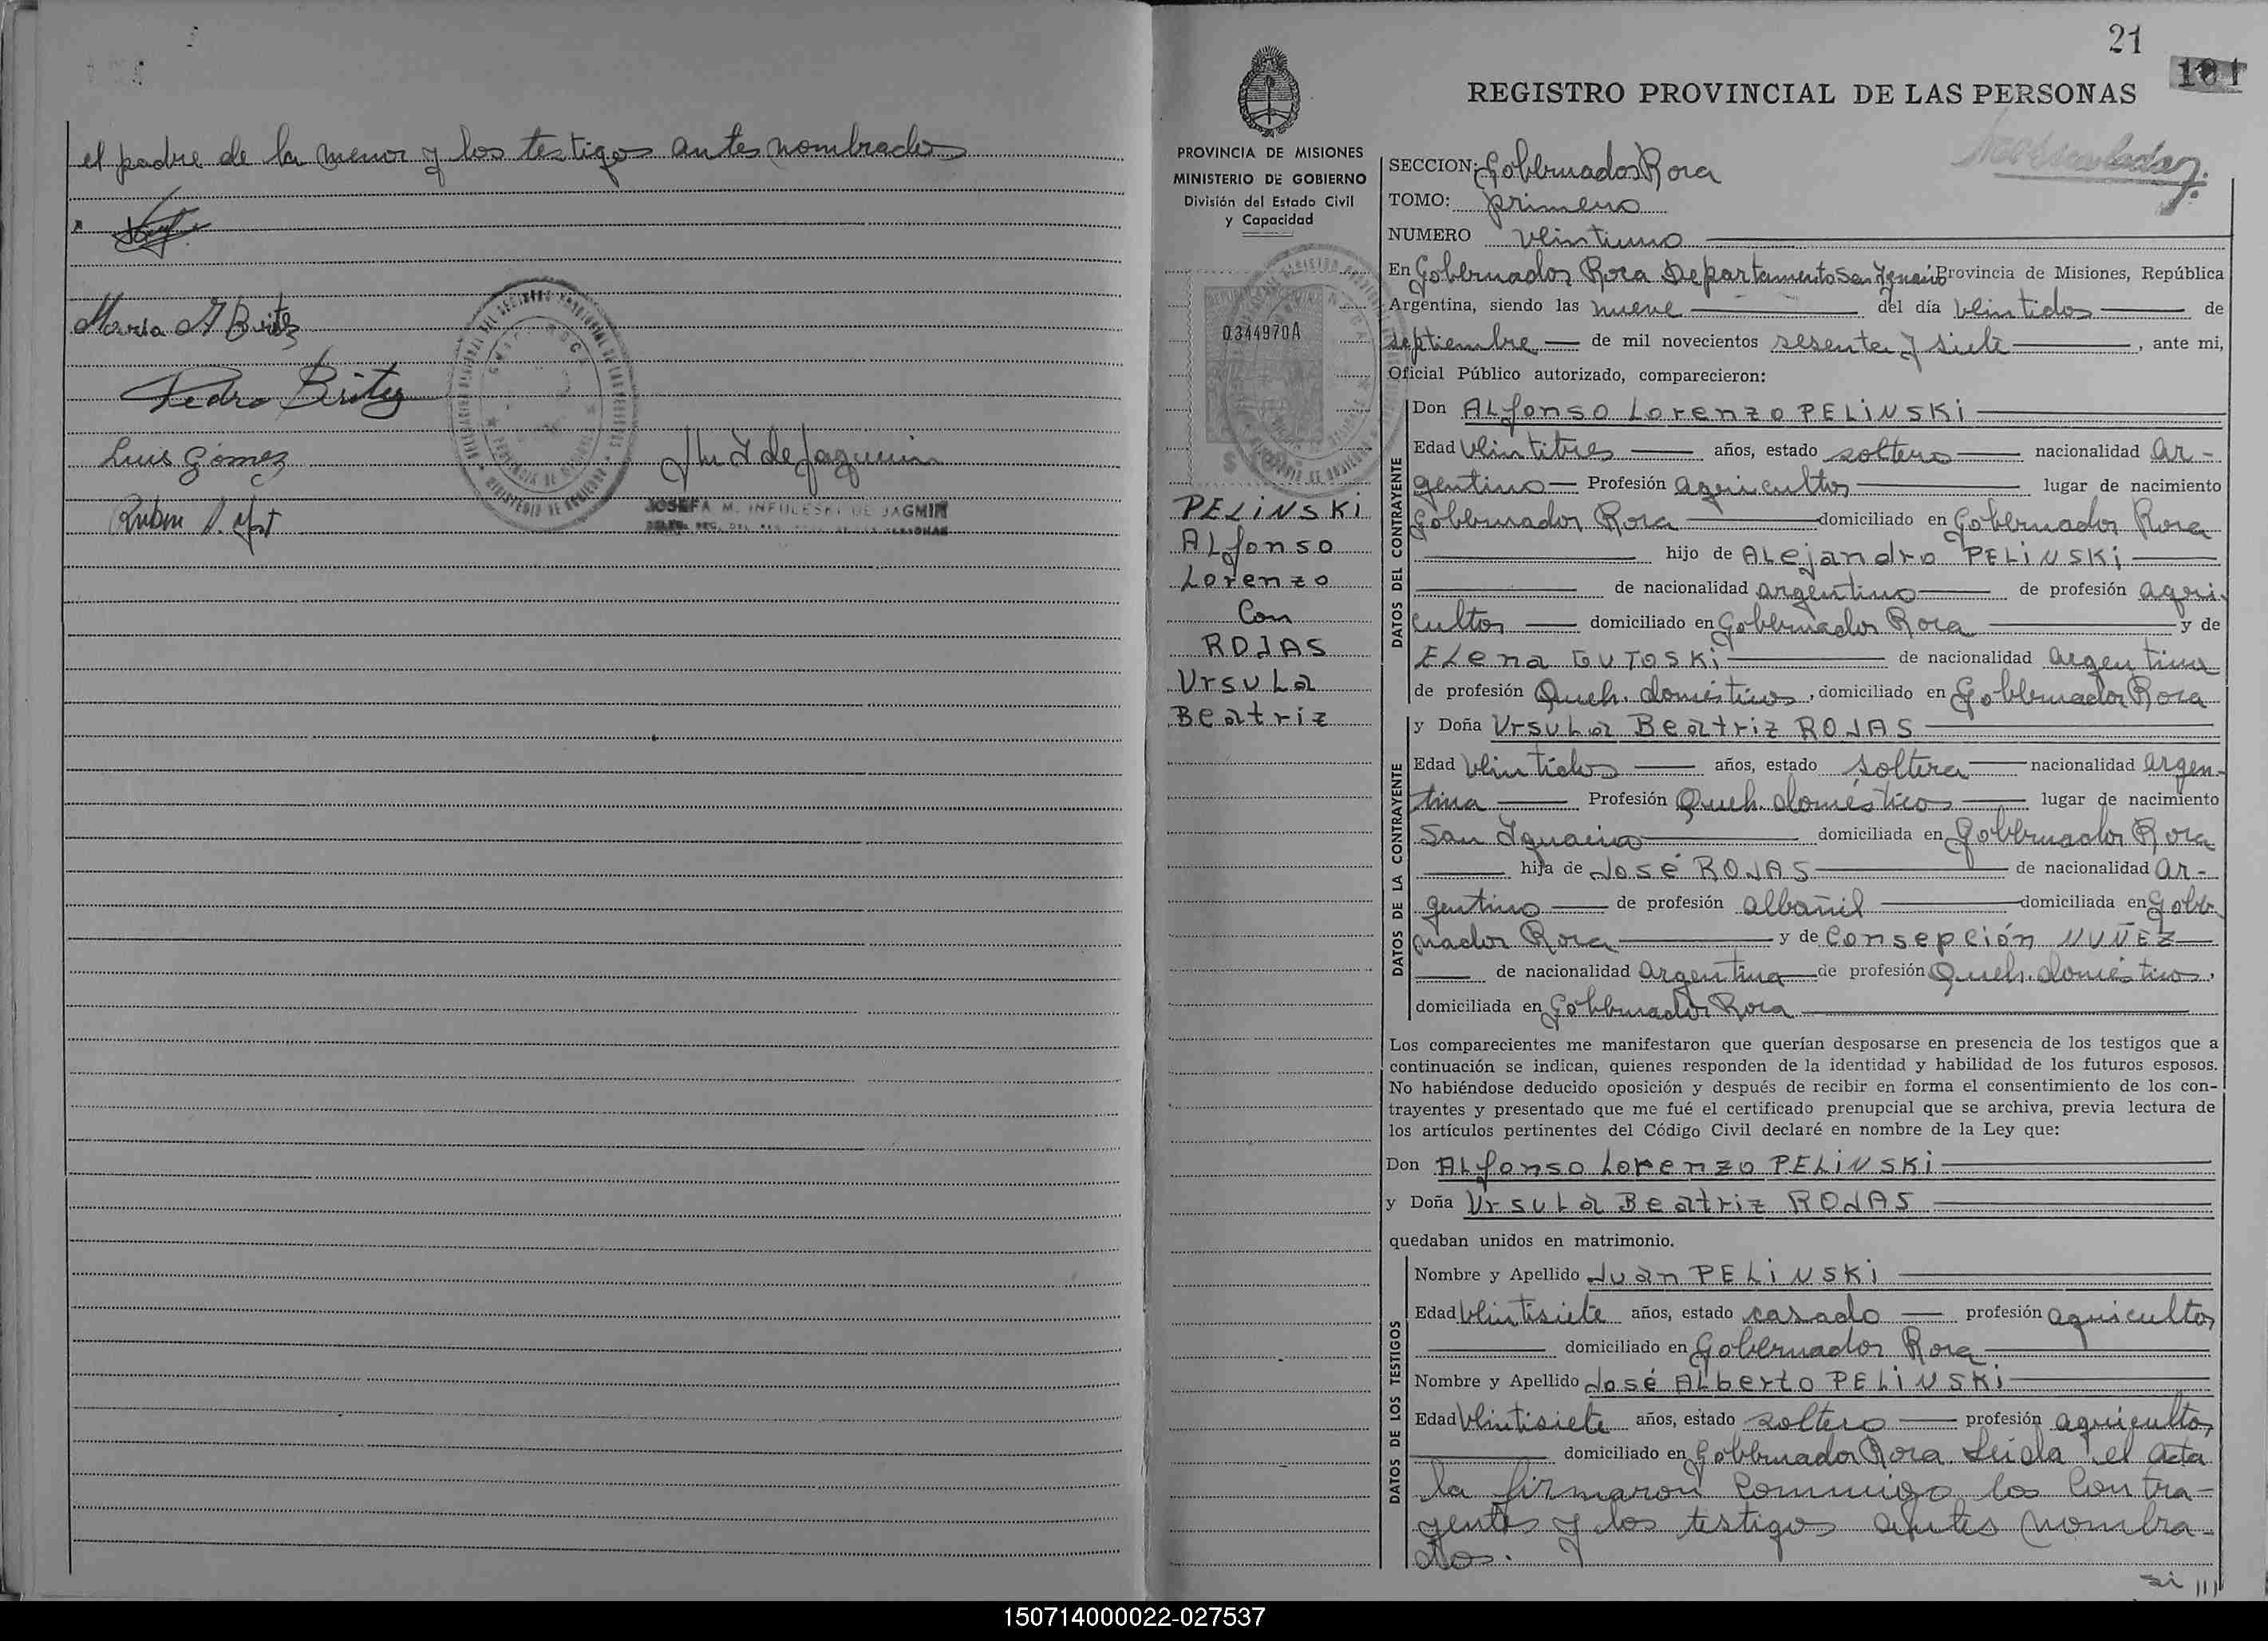 el padre de la menor y los testigos antes nombrados
Maria A Benitez
Pedro Benitez
Luis Gómez
Ruben
JOSEFA M. DE JAGMIN
21
101
REGISTRO PROVINCIAL DE LAS PERSONAS
PROVINCIA DE MISIONES
MINISTERIO DE GOBIERNO
División del Estado Civil
y Capacidad
0344970A
PELINSKI
ALfonso
Lorenzo
Con
ROJAS
UrsuLa
Beatriz
SECCION: Gobernador Roca
TOMO: primero
NUMERO veintiuno
En Gobernador Roca Departamento San Ignacio Provincia de Misiones, República
Argentina, siendo las nueve del día veintidos de
septiembre de mil novecientos sesenta y siete, ante mi,
Oficial Público autorizado, comparecieron:
DATOS DEL CONTRAYENTE
Don ALfonso Lorenzo PELINSKI
Edad veintitres años, estado soltero nacionalidad ar-
gentino Profesión agricultor lugar de nacimiento
Gobernador Roca domiciliado en Gobernador Roca
hijo de ALejandro PELINSKI
de nacionalidad argentino de profesión agri-
cultor domiciliado en Gobernador Roca y de
ELena GUTOSKI de nacionalidad argentina
de profesión Queh. domésticos, domiciliado en Gobernador Roca
DATOS DE LA CONTRAYENTE
y Doña UrsuLa Beatriz ROJAS
Edad veintidos años, estado soltera nacionalidad argen-
tina Profesión Queh. doméstico lugar de nacimiento
San Ignacio domiciliada en Gobernador Roca
hija de José ROJAS de nacionalidad ar-
gentino de profesión albañil domiciliada en Gober
nador Roca y de Consepción NUÑEZ
de nacionalidad argentina de profesión Queh. domésticos,
domiciliada en Gobernador Roca
Los comparecientes me manifestaron que querían desposarse en presencia de los testigos que a
continuación se indican, quienes responden de la identidad y habilidad de los futuros esposos.
No habiéndose deducido oposición y después de recibir en forma el consentimiento de los con-
trayentes y presentado que me fué el certificado prenupcial que se archiva, previa lectura de
los artículos pertinentes del Código Civil declaré en nombre de la Ley que:
Don ALfonso Lorenzo PELINSKI
y Doña UrsuLa Beatriz ROJAS
quedaban unidos en matrimonio.
DATOS DE LOS TESTIGOS
Nombre y Apellido Juan PELINSKI
Edad veintisiete años, estado casado profesión agricultor
domiciliado en Gobernador Roca
Nombre y Apellido José ALberto PELINSKI
Edad veintisiete años, estado soltero profesión agricultor
domiciliado en Gobernador Roca. Leida el acta
la firmaron conmigo los contra-
yentes y los testigos antes nombra-
dos.
150714000022-027537